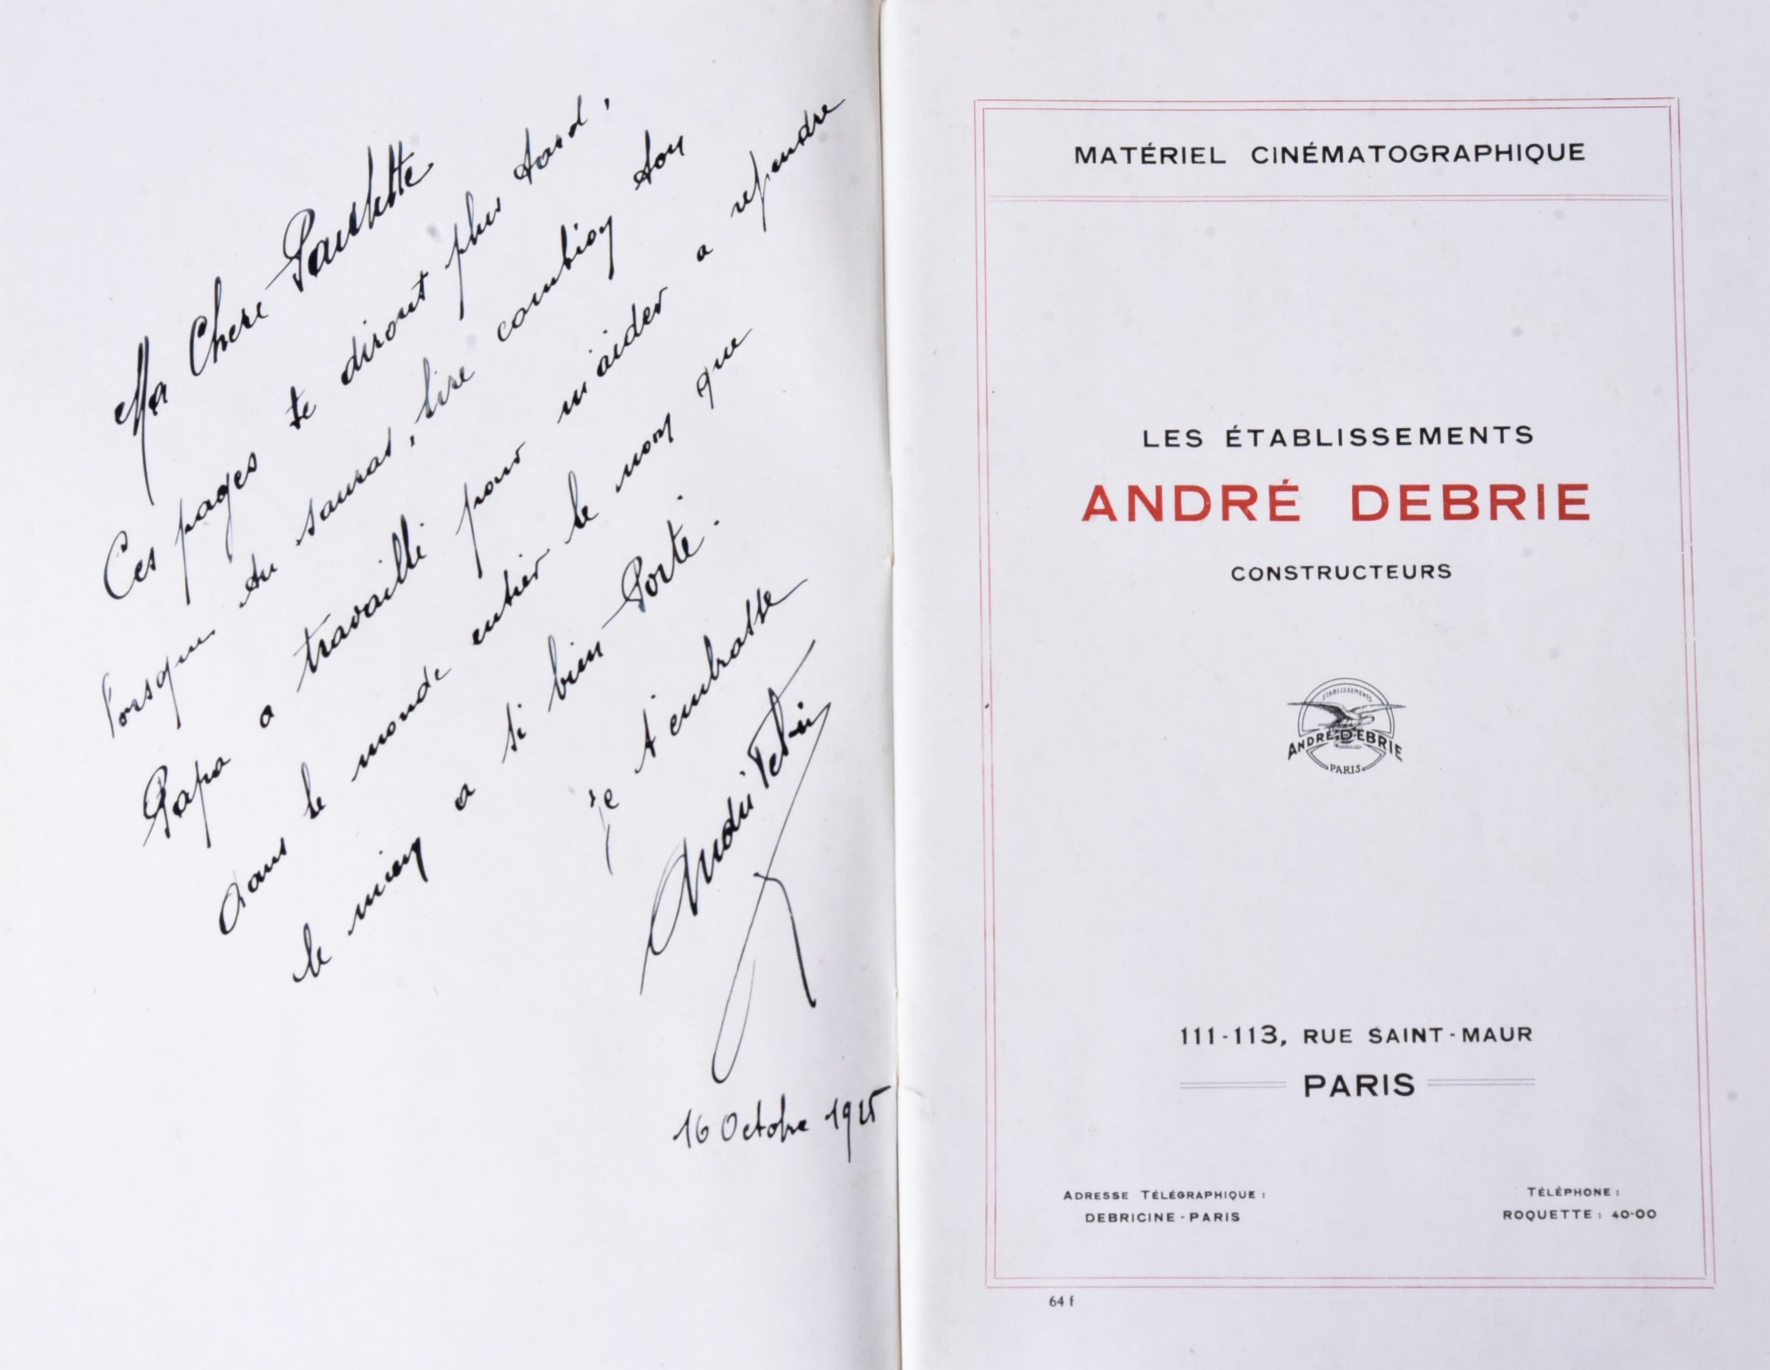 Ma Chere Paulette
Ces pages te diront plus tard,
lorsque tu sauras, lire combien ton
Papa a travaillé pour m'aider a repandre
dans le monde entier le nom que
le mien a si bien Porté.
je t'embrasse
André Debrie
16 Octobre 1925
MATÉRIEL CINÉMATOGRAPHIQUE
LES ÉTABLISSEMENTS
ANDRÉ DEBRIE
CONSTRUCTEURS
ÉTABLISSEMENTS
ANDRÉ DEBRIE
PARIS
111-113, RUE SAINT-MAUR
PARIS
ADRESSE TÉLÉGRAPHIQUE :
DEBRICINE-PARIS
TÉLÉPHONE :
ROQUETTE : 40-00
64 f